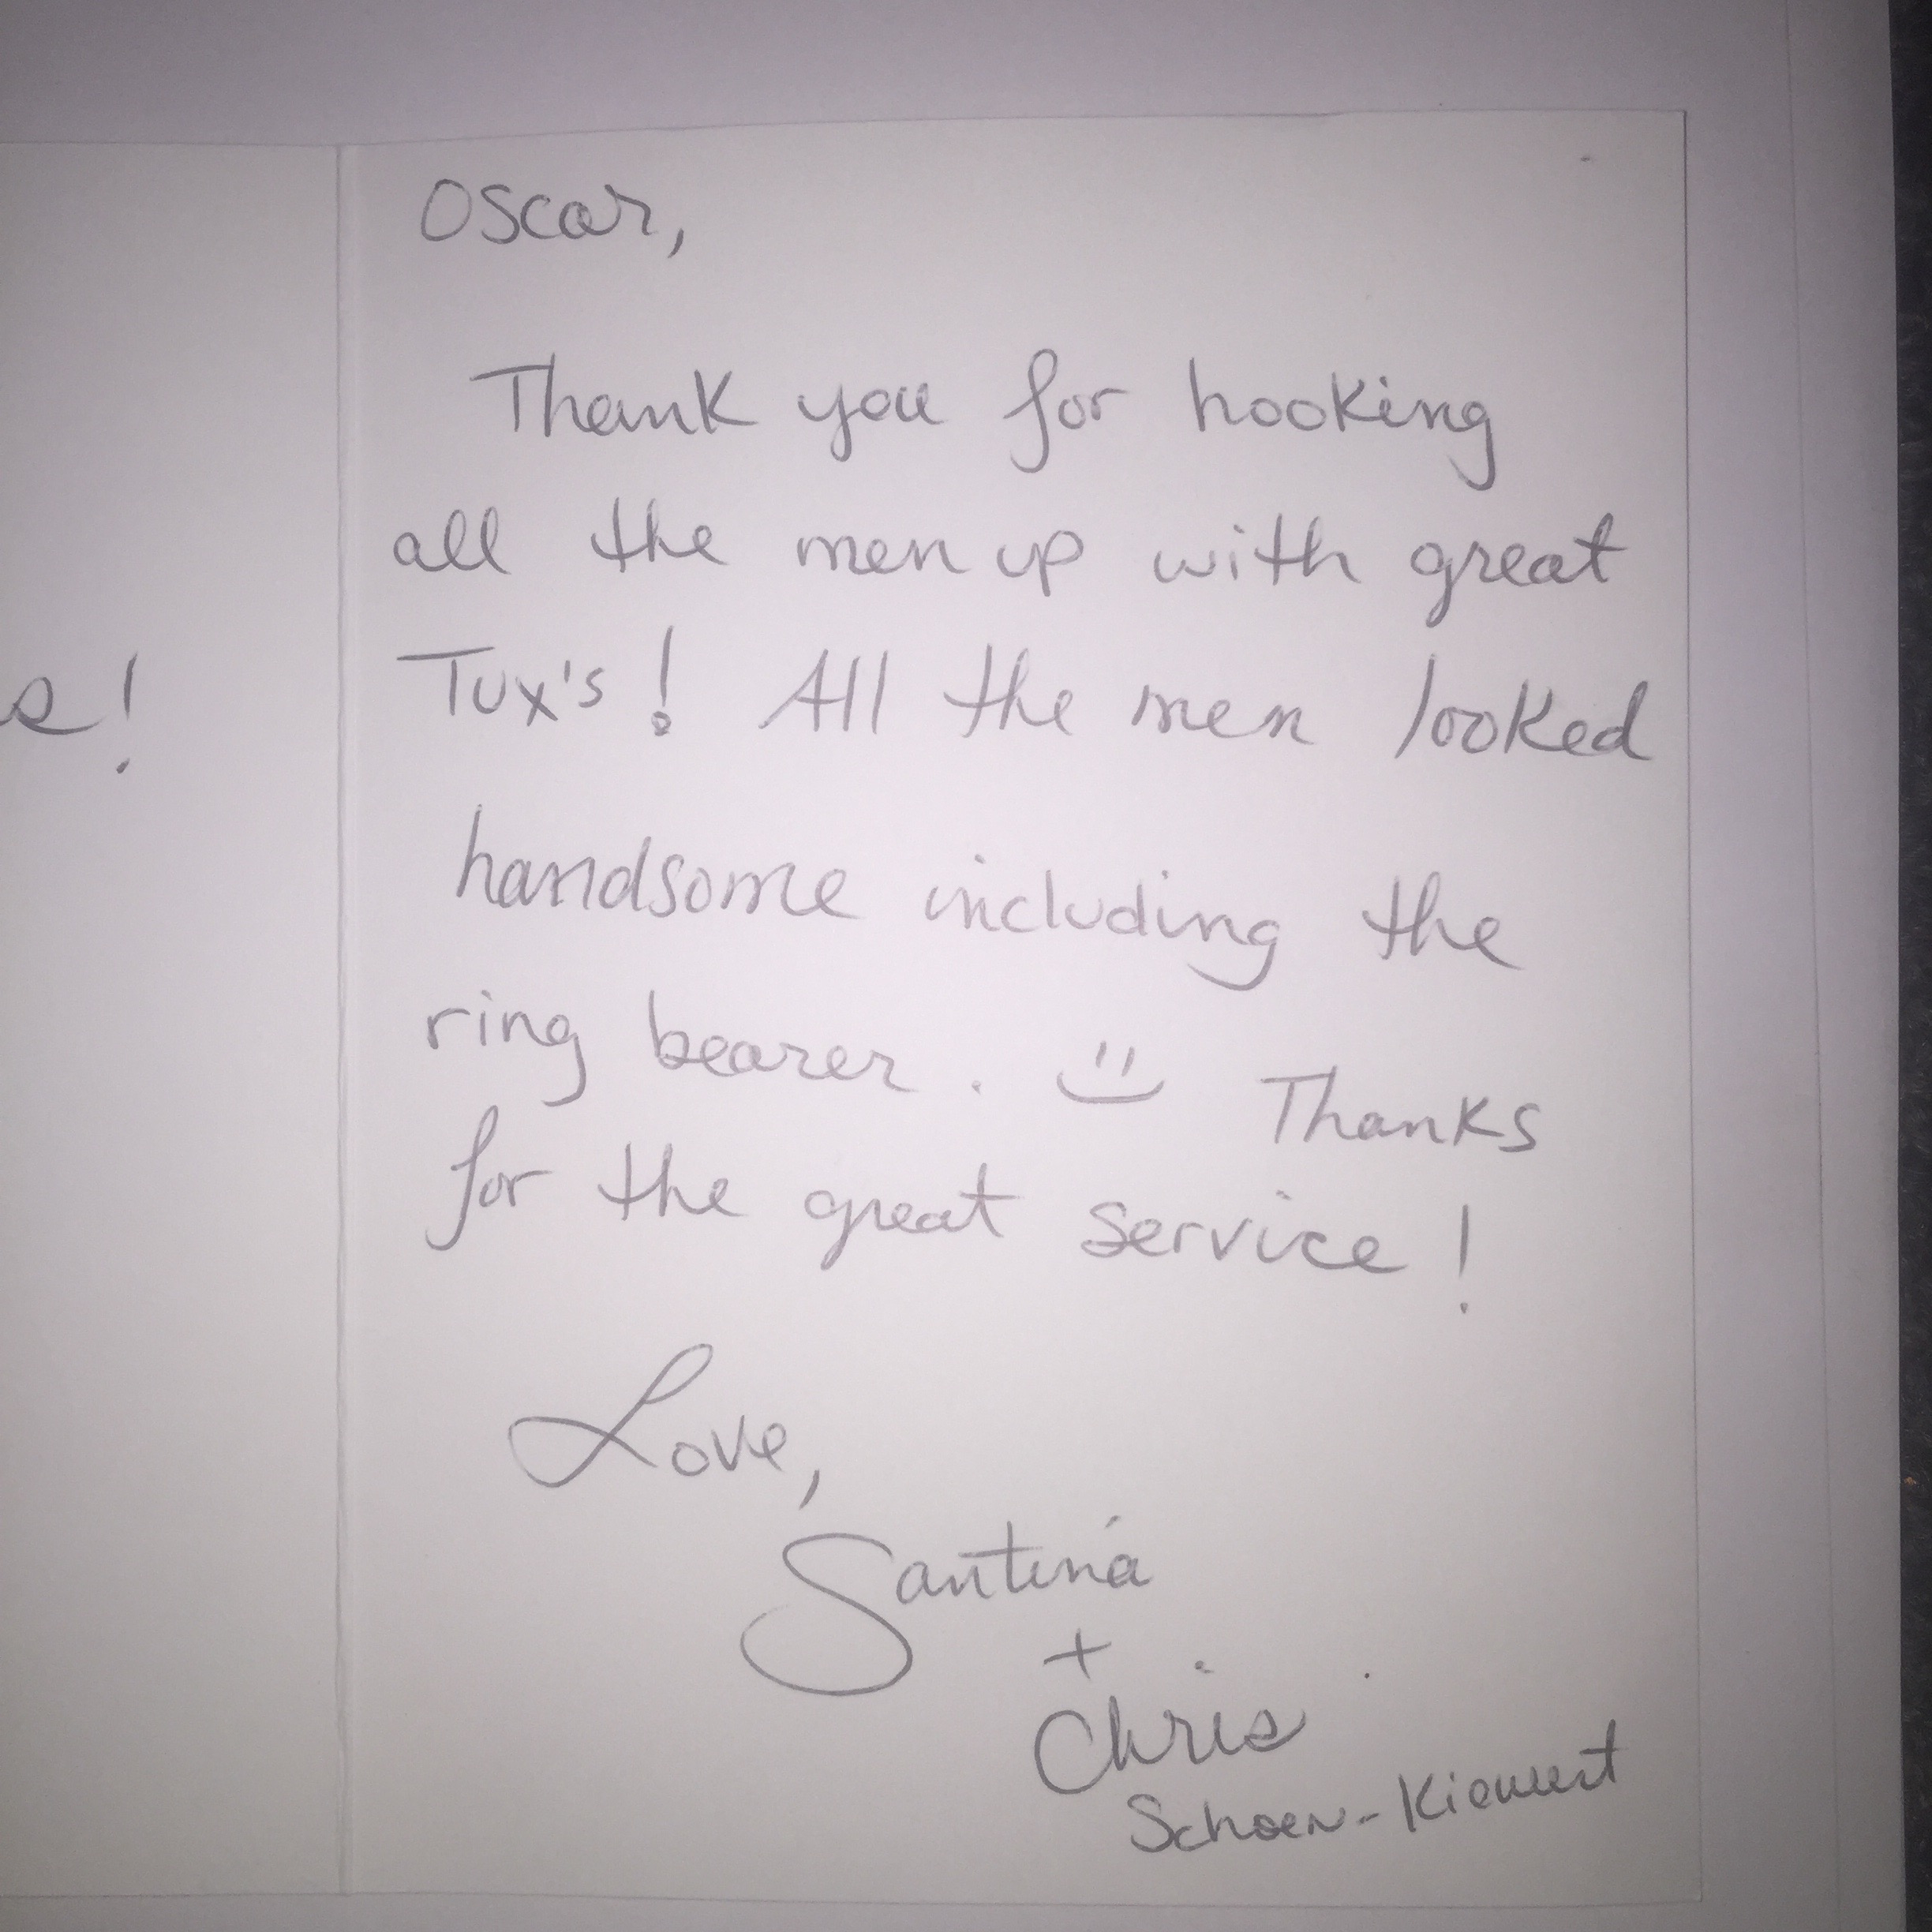 Oscar,
Thank you for hooking
all the men up with great
Tux's! All the men looked
handsome including the
ring bearer. Thanks
for the great service!
Love,
Santina
+
Chris
Schoen-